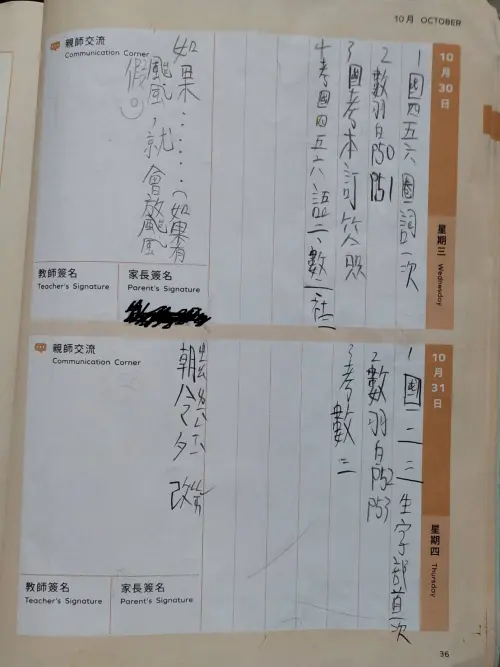 10月 OCTOBER
10月30日
星期三 Wednesday
1 國四五六圈詞一次
2 數習白P50 P51
3 國考本訂簽照
4 考國四五六語二、數二社二
親師交流
Communication Corner
如果……(如果有
颱風,就會放颱風
假
教師簽名
Teacher's Signature
家長簽名
Parent's Signature
10月31日
星期四 Thursday
1 國一二三生字部首一次
2 數習白P52 P53
3 考數二
親師交流
Communication Corner
朝令夕改
教師簽名
Teacher's Signature
家長簽名
Parent's Signature
36